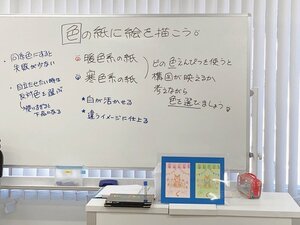 色の紙に絵を描こう。
・同傾色にすると
失敗が少ない
・目立たせたい時は
反対色を選ぶ
①暖色系の紙
②寒色系の紙
★白が活かせる
★違うイメージに仕上る
どの色えんぴつを使うと
構図が映えるか
考えながら
色を選びましょう。